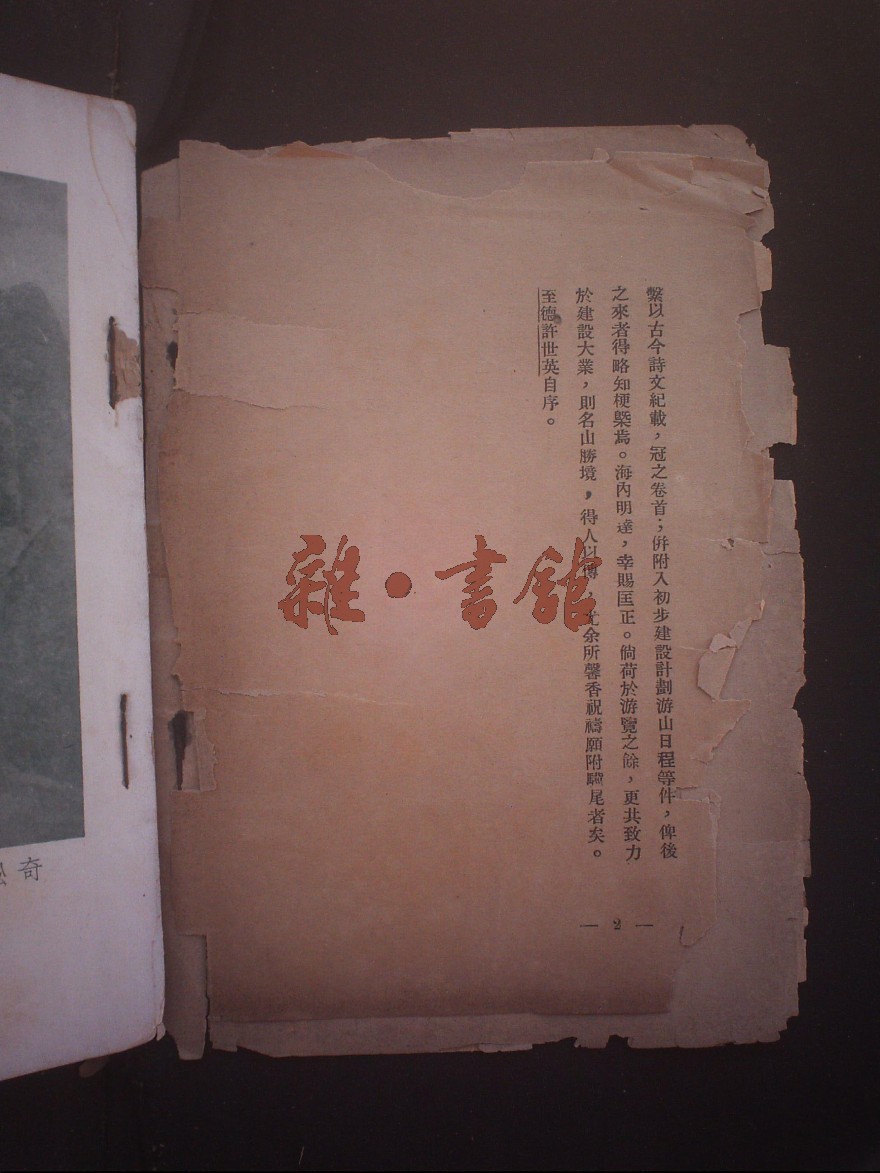 繫以古今詩文紀載，冠之卷首；併附入初步建設計劃游山日程等件，俾後
之來者得略知梗槩焉。海內明達，幸賜匡正。倘荷於游覽之餘，更共致力
於建設大業，則名山勝境，得人以傳，尤余所馨香祝禱願附驥尾者矣。
至德許世英自序。
— 2 —
雜·書館
奇松